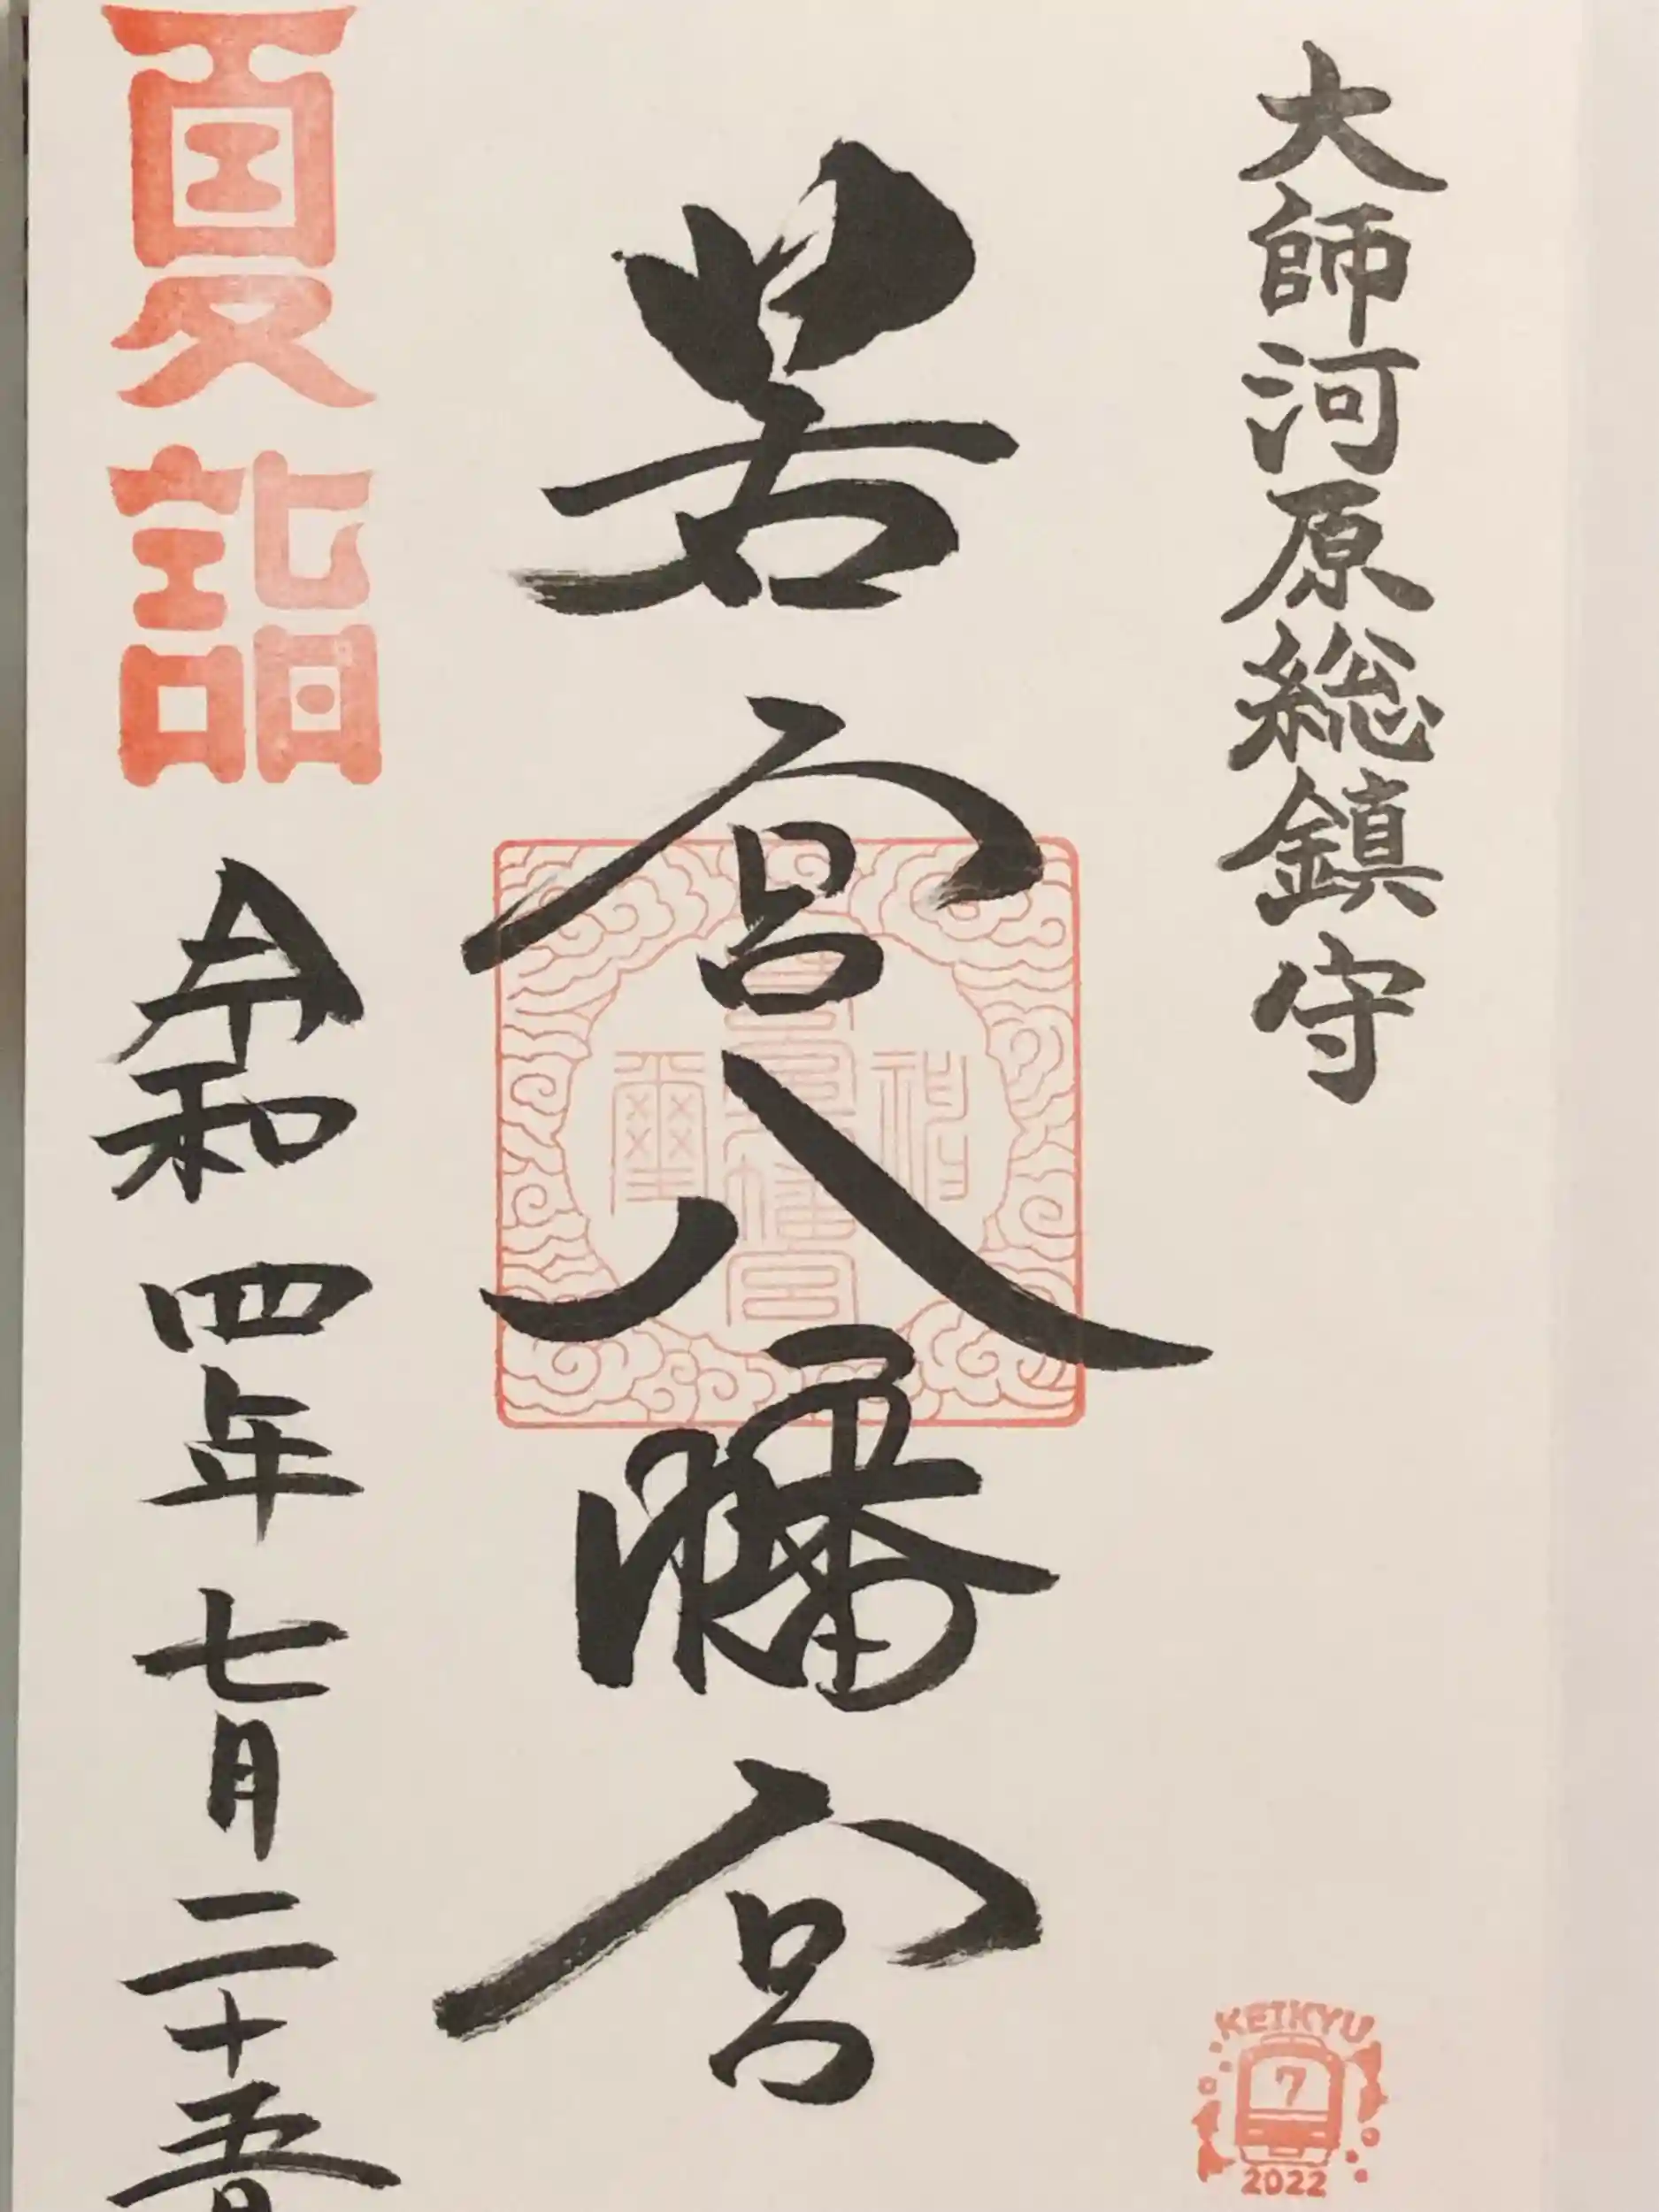 大師河原総鎮守
若宮八幡宮
夏詣
令和四年七月二十五日
KEIKYU
7
2022